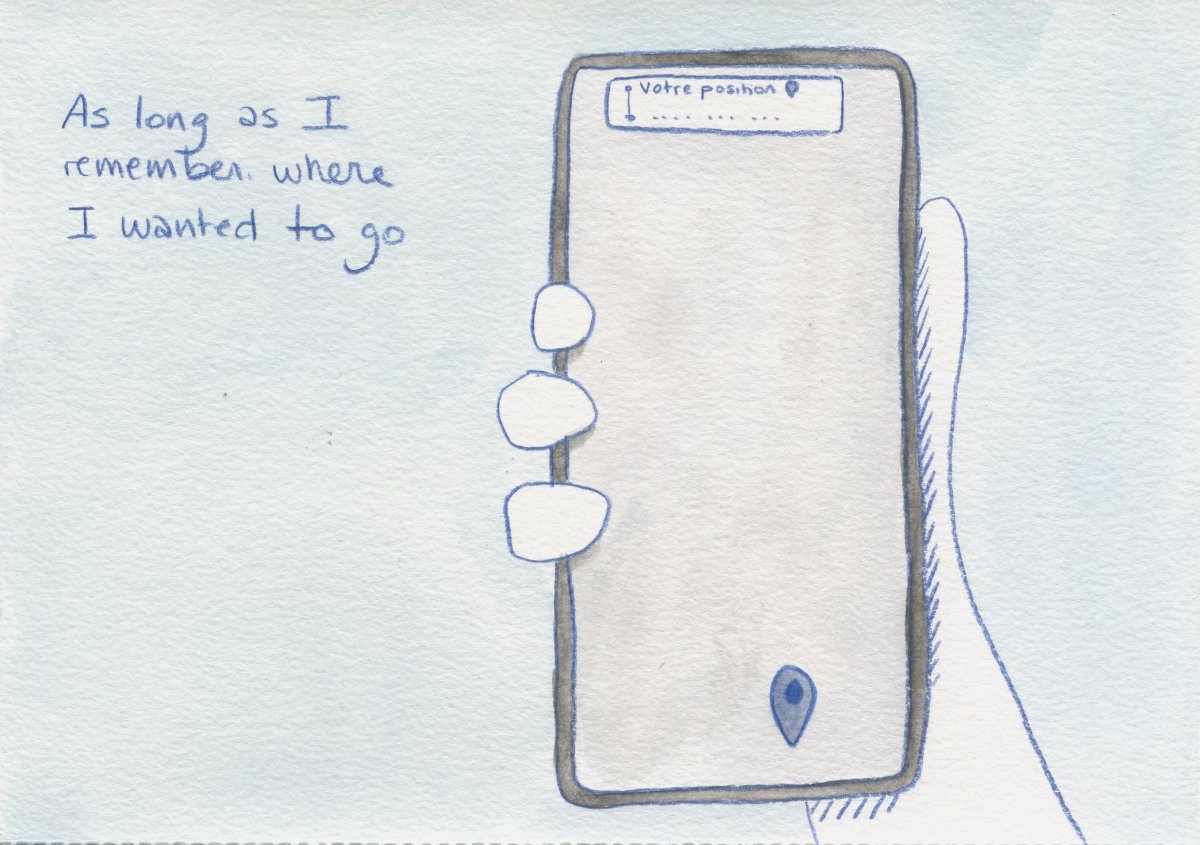 As long as I
remember. where
I wanted to go
Votre position
.... ... ...